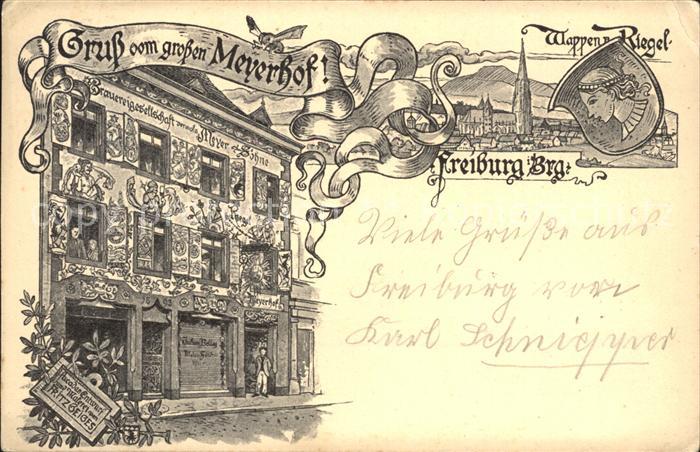 Gruß vom großen Meyerhof!
Wappen v. Riegel.
Brauereigesellschaft vormals Meyer & Söhne
Freiburg i/Brg.
Meyerhof
Viele Grüße aus
Freiburg von
Karl Schnieper
FRITZ GEIGES